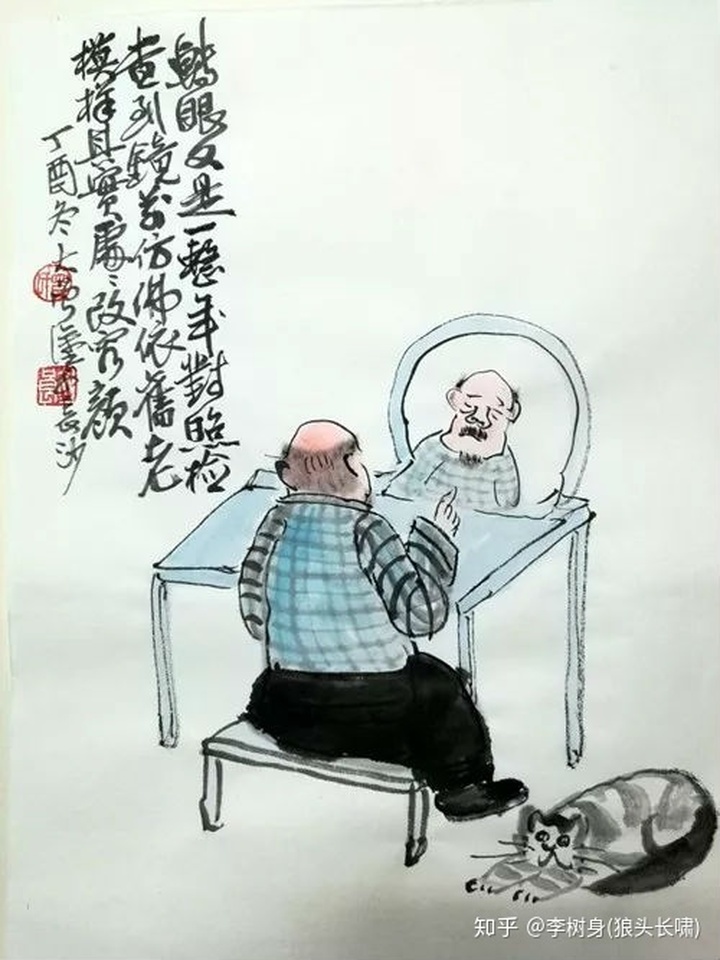 轉眼又是一整年對照检
查到鏡前仿佛依舊老
模样其實處々改容颜
丁酉冬大長沙
知乎 @李树身(狼头长啸)